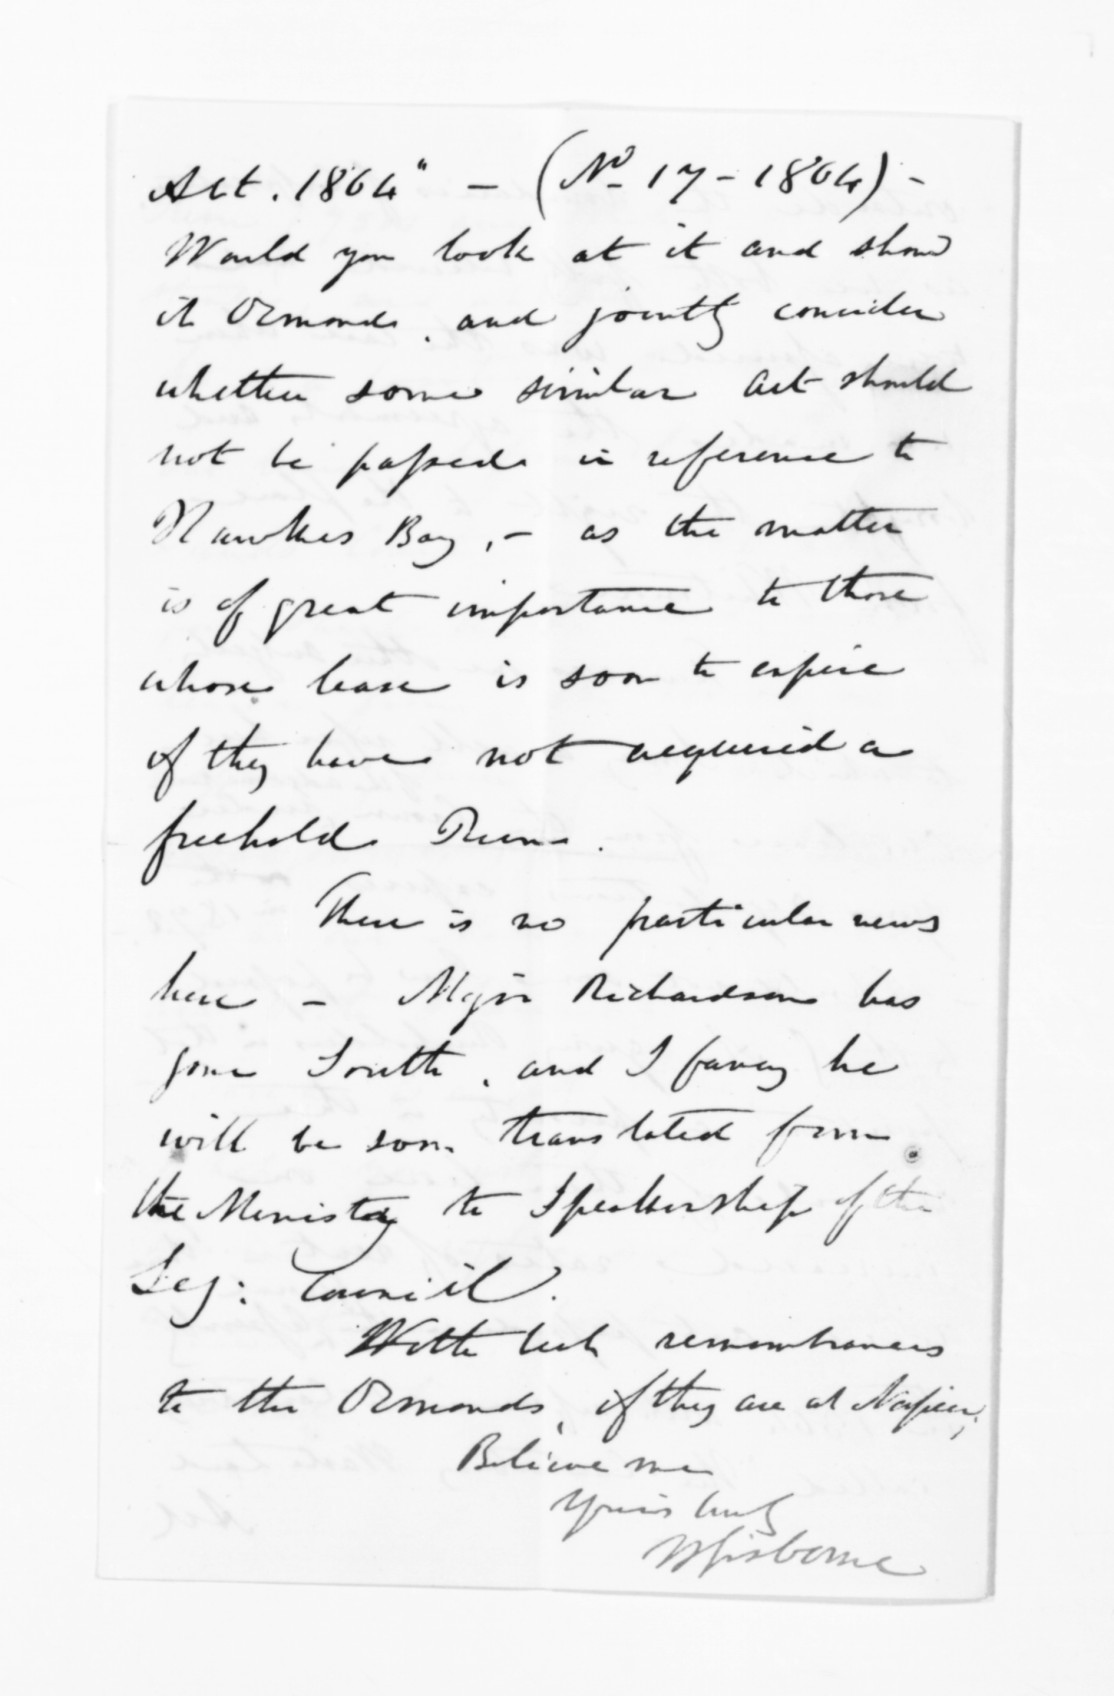 Act. 1864" - (No 17 - 1864) -
Would you look at it and show
it Ormond, and jointly consider
whether some similar act should
not be passed in reference to
Hawkes Bay, - as the matter
is of great importance to those
whose lease is soon to expire
if they have not acquired a
freehold Run.
There is no particular news
here - Major Richardson has
gone South, and I fancy he
will be soon translated from
the Ministry to Speakership of the
Leg: Council.
With best remembrances
to the Ormonds, if they are at Napier,
Believe me
Yours truly
WGisborne